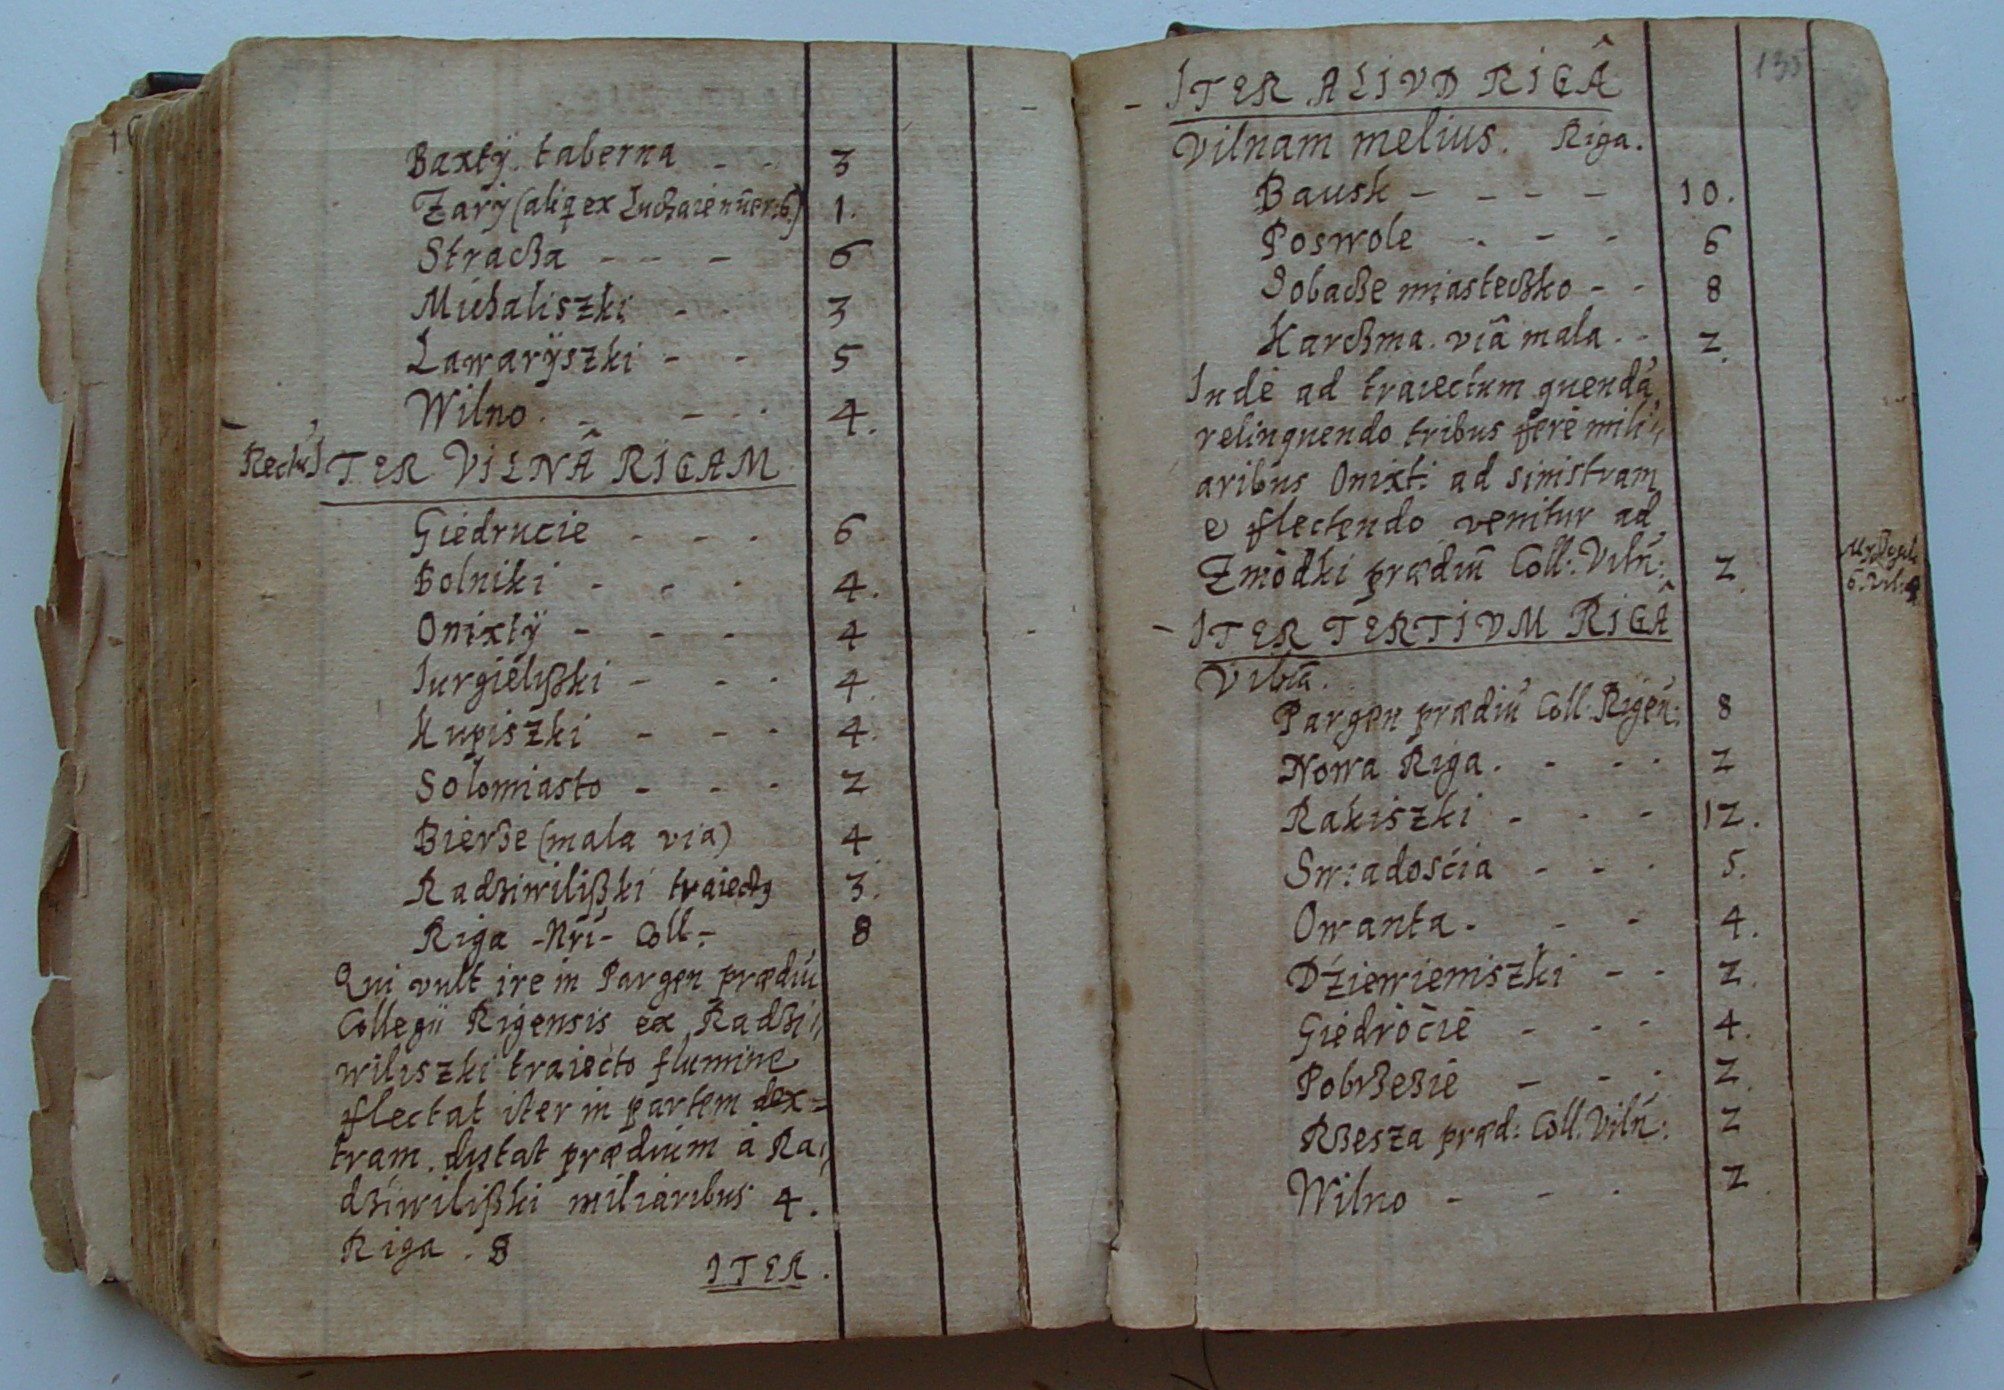 Baxtÿ. taberna - - 3
Zarÿ (aliq ex) 1.
Stracʒa - - - 6
Michaliszki - - 3
Lawarÿszki - - 5
Wilno. - - . 4.
ITER VILNÂ RIGAM
Giedrucie - - - 6
Bolniki - - - 4.
Onixtÿ - - - 4
Iurgielißki - - - 4.
Kupiszki - - - 4.
Solomiasto - - - 2
Bierʒe (mala via) 4
Radʒiwilißki traiectꝰ 3.
Riga - Nri - Coll - 8
Qui vult ire in Pargen prædiũ
Collegii Rigensis ex Radʒi,,
wiliszki traiecto flumine
flectat iter in partem dex=
tram. distat prædium à Ra,,
dʒiwilißki miliaribus 4.
Riga. 8
ITER.
135
ITER ALIVD RIGÂ
Vilnam melius. Riga.
Bausk - - - - 10.
Poswole - - - 6
Sobacʒe miastecʒko - - 8
Karcʒma. viâ mala. - 2.
Inde ad traiectum quendã
relinquendo tribus fere mili,,
aribus Onixti ad sinistram
e flectendo venitur ad
Zmòdki prædiũ Coll: Viln: 2.
ITER TERTIVM RIGÂ
Pargen prædiũ Coll. Rigen: 8
Nowa Riga. - - - 2
Rakiszki - - - 12.
Swiadościa - - - 5.
Owanta - - - 4.
Dźiewieniszki - - 2.
Giedròcie - - - 4.
Pobrʒeʒie - - - 2.
Rʒesza præd: Coll. Viln: 2
Wilno - - . 2.